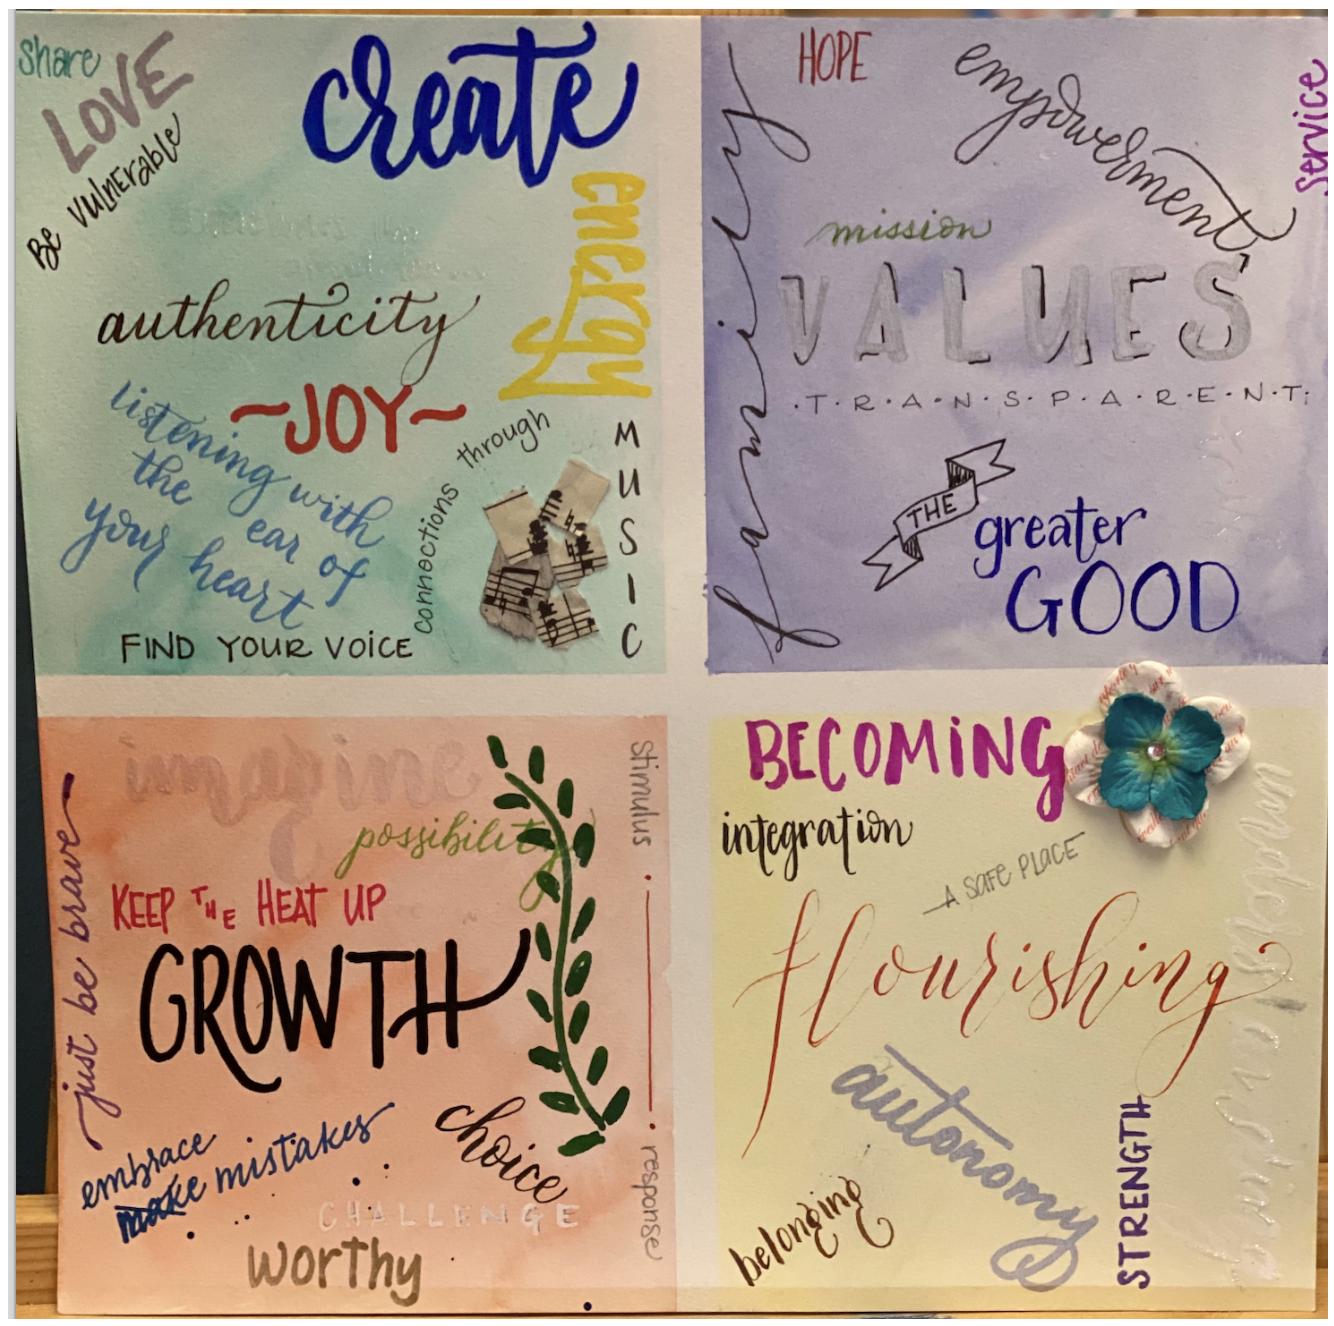 share
LOVE
Be vulnerable
create
energy
authenticity
~JOY~
listening with
the ear of
your heart
connections through
MUSIC
FIND YOUR VOICE
HOPE
empowerment
service
family
mission
VALUES
·T·R·A·N·S·P·A·R·E·N·T·
THE
greater
GOOD
imagine
possibility
stimulus
response
just be brave
KEEP THE HEAT UP
GROWTH
embrace
make mistakes
choice
CHALLENGE
worthy
BECOMING
integration
A SAFE PLACE
flourishing
autonomy
STRENGTH
belonging